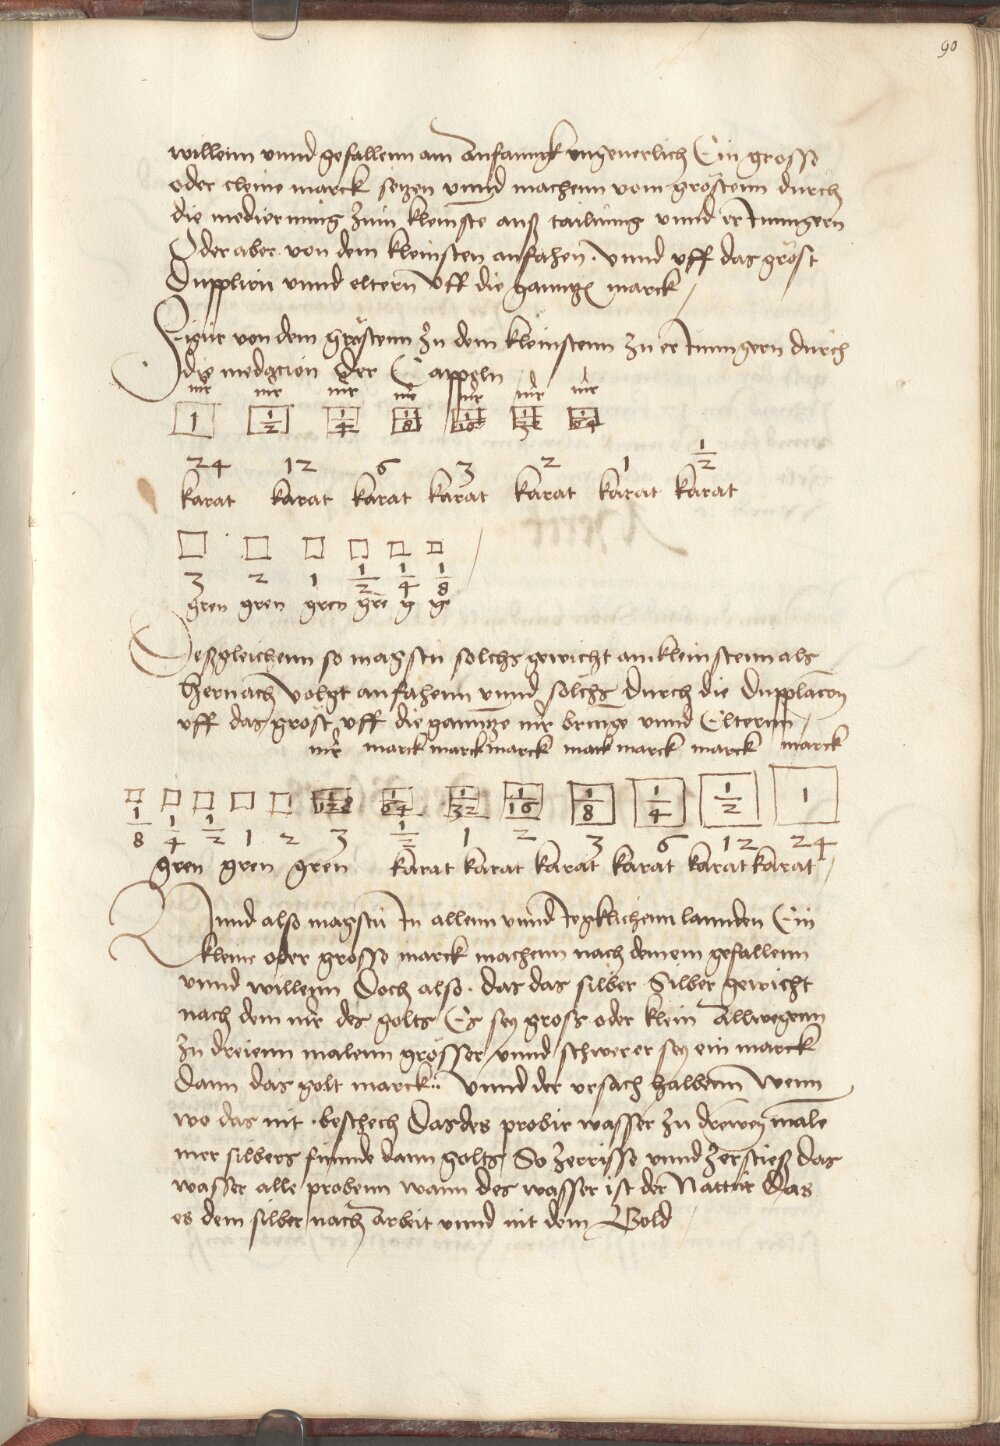 90
willenn vnnd gefallenn am Anfannck vngeuerlich Ein grosse
oder cleine marck setzen vnnd machenn vom gröstenn durch
die medierning zum kleinste auß tailung vnnd er Jungern
Oder aber von dem kleinsten anfahen. vnnd vff das gröst
Dupplirn vnnd eltern Vff die gantze marck
Figur von dem Gröstenn zu dem kleinstenn zu er Jungern durch
die mediation der Cappeln
mr mr mr mr mr mr mr
1 1/2 1/4 1/8 1/16 1/32 1/64
24 12 6 3 2 1 1/2
karat karat karat karat karat karat karat
3 2 1 1/2 1/4 1/8
gren gren gren gre g g
Deßgleichenn so magstu solchs gewicht am kleinstenn als
hernach Volgt anfahenn vnnd solchs durch die Dupplacon
vff das gröst vff die ganntze mr bringe vnnd Elternn
mr marck marck marck marck marck marck marck
1/128 1/64 1/32 1/16 1/8 1/4 1/2 1
1/8 1/4 1/2 1 2 3 1/2 1 2 3 6 12 24
gren gren gren karat karat karat karat karat karat
Vnnd also magstu Jn allenn vnnd Jegklichenn lannden Ein
kleine oder grosse marck machenn nach deinem gefallenn
vnnd willenn Doch also. das das silber Silber gewicht
nach dem mr des golts Es sey gross oder klein Allwegenn
zu dreienn malenn grösser vnnd schwerer sey ein marck
dann das golt marck. Vnnd der vrsach halbenn Wenn
wo das nit beschech Das des probir wasser zu drewey male
mer silbers funnde dann golts So zerrisse vnnd zerstieß das
wasser alle probenn wann des wasser ist der Nattur Das
es dem silber nach Arbeit vnnd nit dem Gold